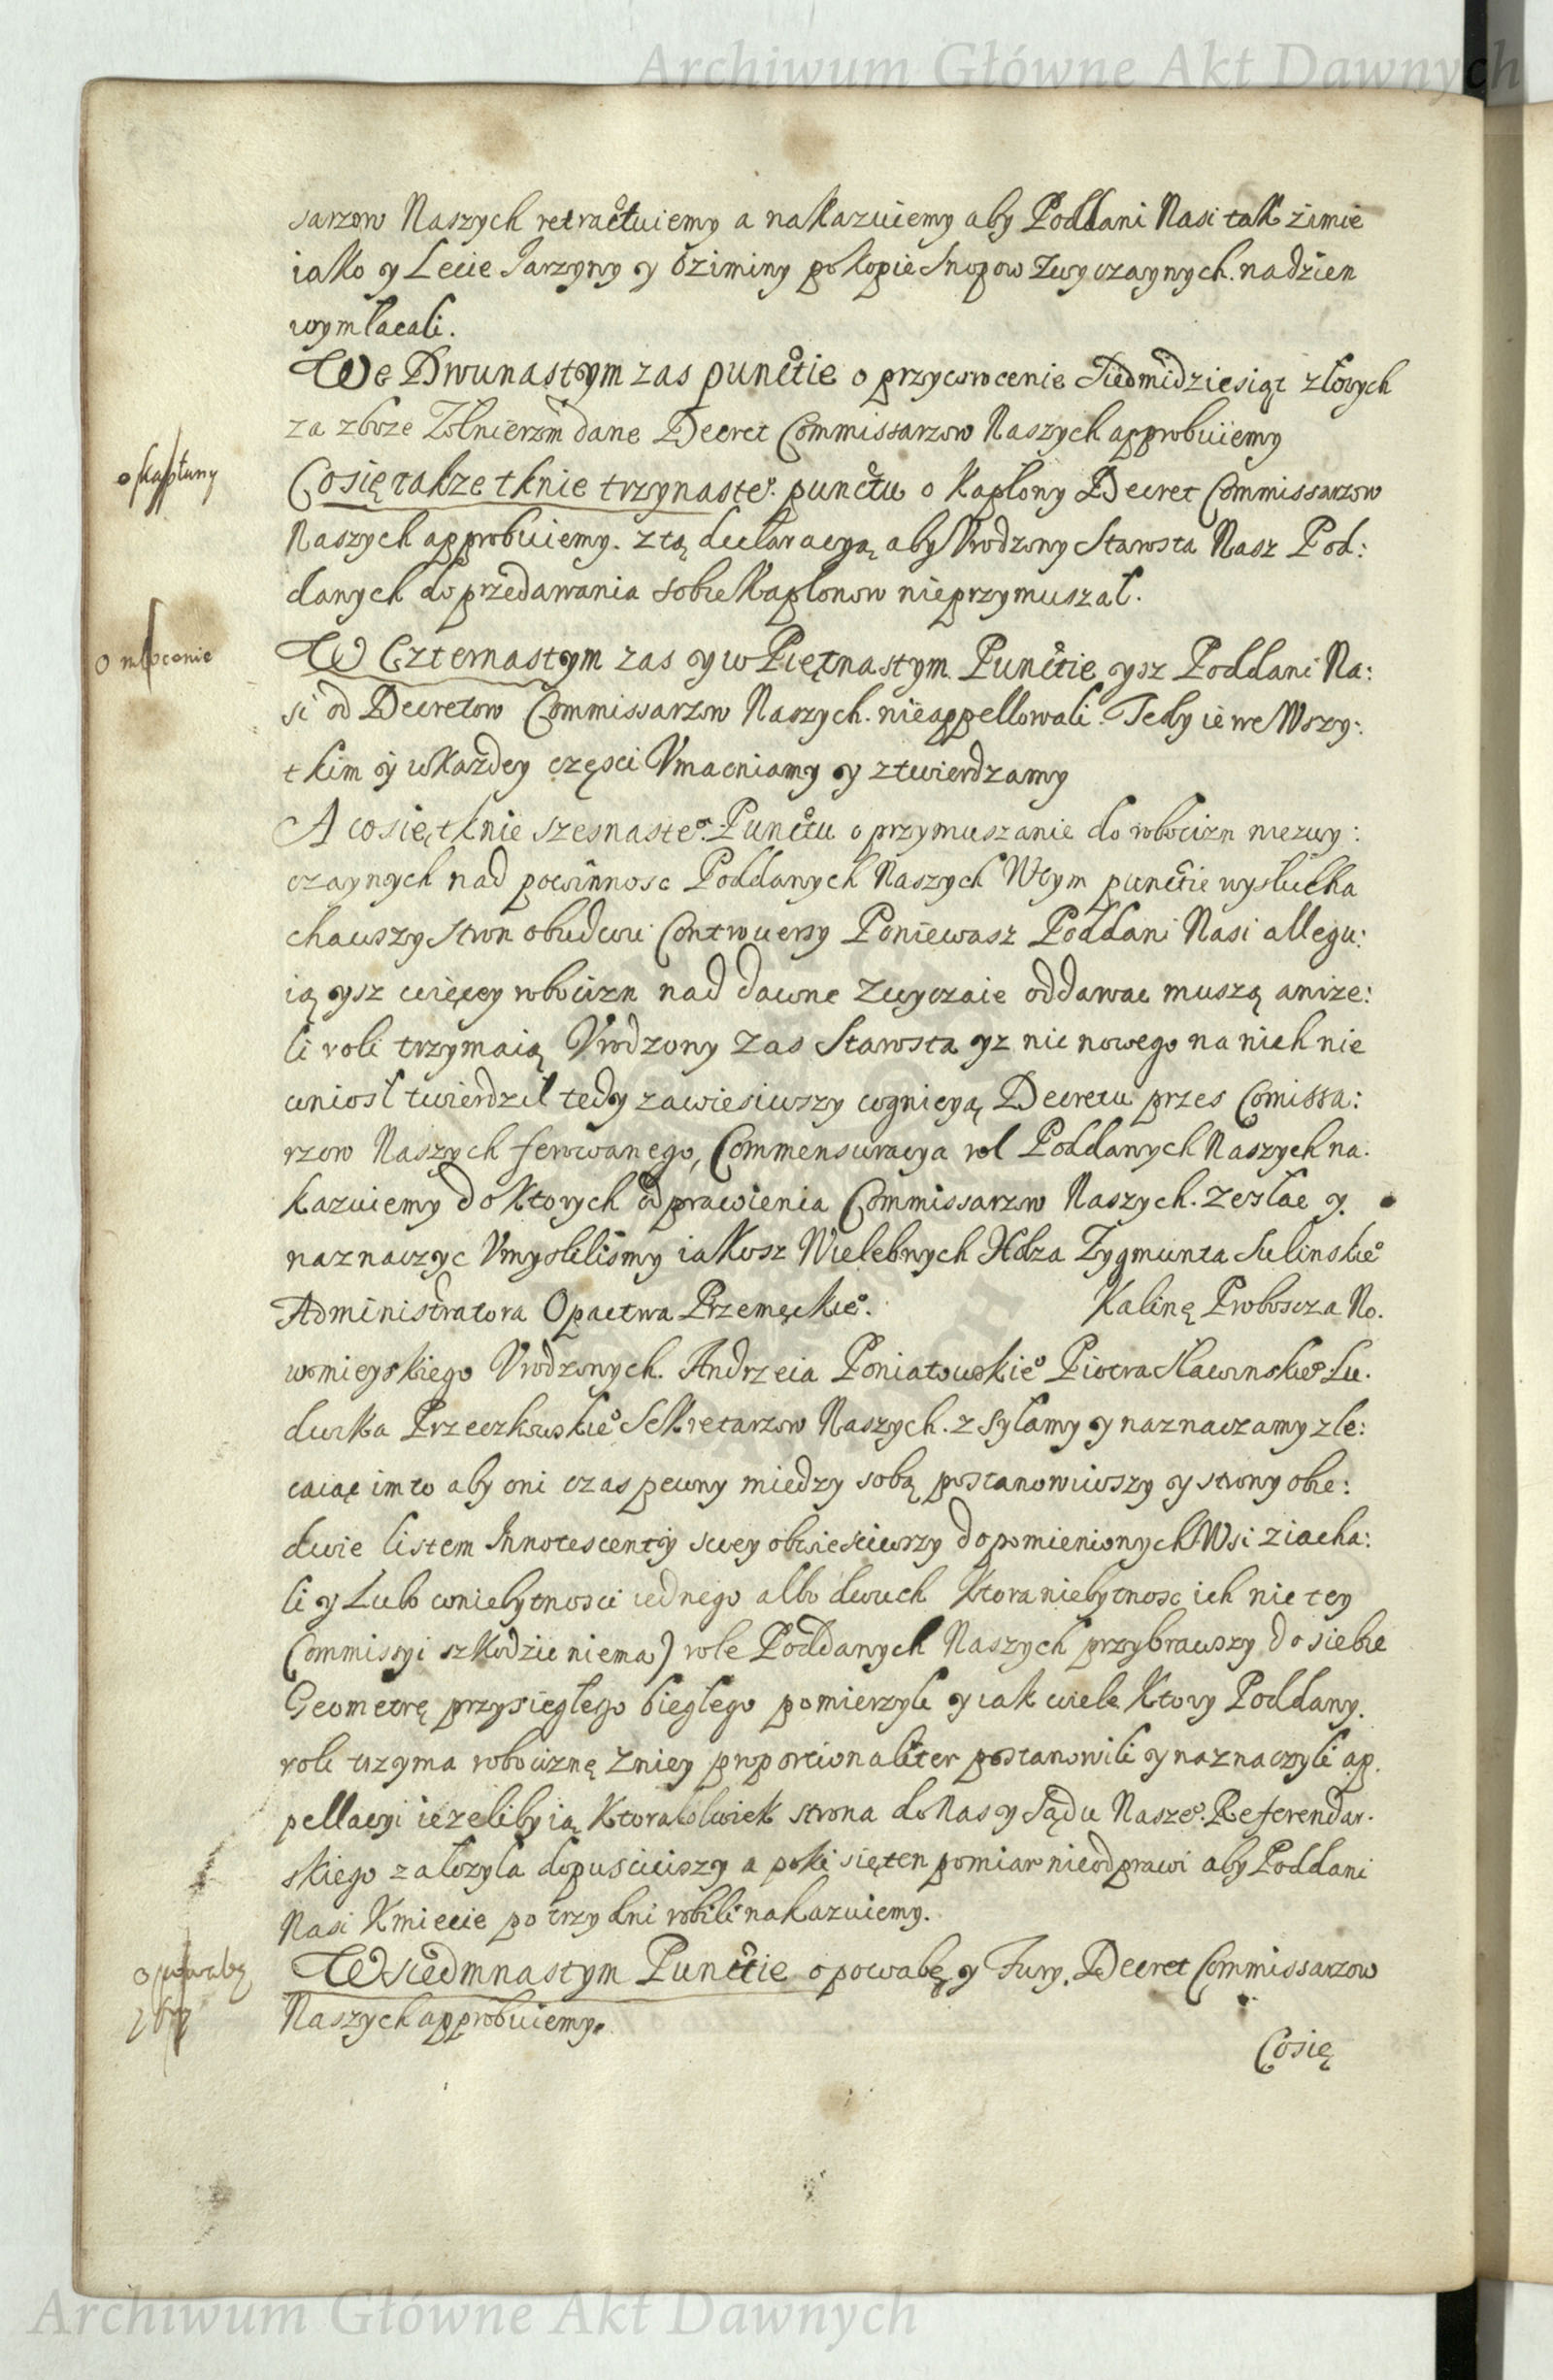 Archiwum Główne Akt Dawnych
sarzow Naszych retractuiemy a nakazuiemy aby Poddani Nasi tak zimie
iako y Lecie Jarzyny y Oziminy po kopie Snopow Zwyczaynych. na dzien
wymłacali.
We Dwunastym zas punctie o przywrocenie Siedmidziesiąt złotych
za zboze Zołnierzom dane Decret Commissarzow Naszych approbuiemy
o kapłuny
Co się takze tknie trzynasteo. punctu o Kapłony Decret Commissarzow
Naszych approbuiemy. z tą declaracyą aby Vrodzony Starosta Nasz Pod:
danych do przedawania sobie Kapłonow nieprzymuszał.
o młocenie
W Czternastym zas y w Piętnastym Punctie ysz Poddani Na:
si od Decretow Commissarzow Naszych. nieappellowali. Tedy ie we Wszy:
tkim y w Kazdey częsci Vmacniamy y ztwierdzamy
A co się tknie szesnasteo. Punctu o przymuszanie do robocizn niezwy:
czaynych nad powinnosc Poddanych Naszych W tym punctie wysłucha
chawszy Stron obudwu Controuersy Poniewasz Poddani Nasi allegu:
ią ysz więcey robocizn nad dawne Zwyczaie oddawac muszą anize:
li roli trzymaią Vrodzony Zas Starosta yz nic nowego na nich nie
wniosł twierdził tedy zawiesiwszy cognicyą Decretu przes Comissa:
rzow Naszych ferowanego, Commensuracya rol Poddanych Naszych na.
kazuiemy do Ktorych odprawienia Commissarzow Naszych. zesłac y.
naznaczyc Vmyslilismy iakosz Wielebnych Xdza Zygmunta Sulinskieo
Administratora Opactwa Przemęckieo. Kalinę Proboscza No.
womieyskiego Vrodzonych. Andrzeia Poniatowskieo Piotra Sławinskieo Lu.
dwika Przeczkowskieo Sekretarzow Naszych. zsyłamy y naznaczamy zle:
caiąc im to aby oni czas pewny miedzy sobą postanowiwszy y strony obie:
dwie listem Innotescentiy swey obwiesciwszy do pomienionych Wsi ziacha:
li y Lubo w niebytnosci iednego albo dwuch Ktora niebytnosc ich nic tey
Commissyi szkodzic niema) role Poddanych Naszych przybrawszy do siebie
Geometrę przysięgłego biegłego pomierzyli y iak wiele Ktory Poddany.
roli trzyma robociznę z niey proportionaliter postanowili y naznaczyli ap.
pellacyi iezeliby ią Ktorakolwiek strona do Nas y Sądu Naszeo. Referendar.
skiego załozyła dopusciwszy a poki się ten pomiar nieodprawi aby Poddani
Nasi Kmiecie po trzy dni robili nakazuiemy.
o powabę
W Siedmnastym Punctie o powabę y Fury. Decret Commissarzow
Naszych approbuiemy.
Co się
Archiwum Główne Akt Dawnych